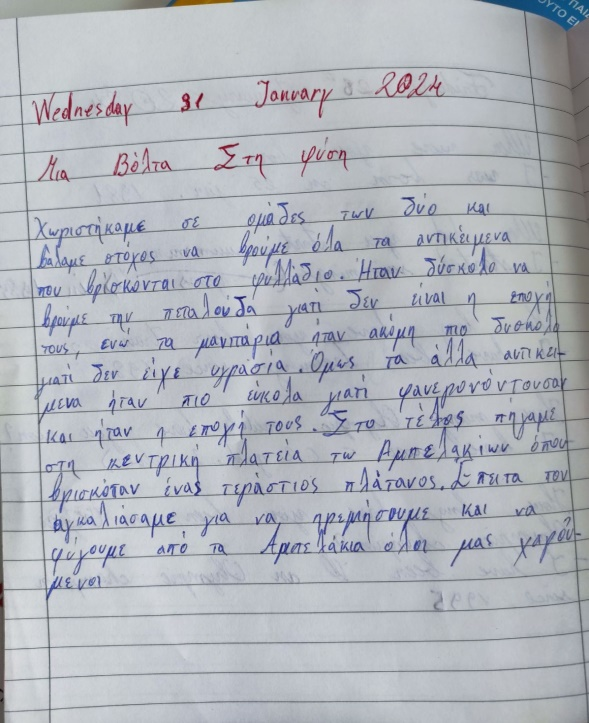 ΠΑΙ
ΟΥΤΟ ΕΙ
Wednesday 31 January 2024
Μια Βόλτα Στη φύση
Χωριστήκαμε σε ομάδες των δύο και
βάλαμε στόχος να βρούμε όλα τα αντικείμενα
που βρίσκονται στο φυλλάδιο. Ήταν δύσκολο να
βρούμε την πεταλούδα γιατί δεν είναι η εποχή
τους, ενώ τα μανιτάρια ήταν ακόμη πιο δύσκολο
γιατί δεν είχε υγρασία. Όμως τα άλλα αντικεί-
μενα ήταν πιο εύκολα γιατί φανερονόντουσαν
και ήταν η εποχή τους. Στο τέλος πήγαμε
στη κεντρική πλατεία τω Αμπελακίων όπου
βρισκόταν ένας τεράστιος πλάτανος. Έπειτα τον
αγκαλιάσαμε για να ηρεμήσουμε και να
φύγουμε από τα Αμπελάκια όλοι μας χαρού-
μενοι
1995